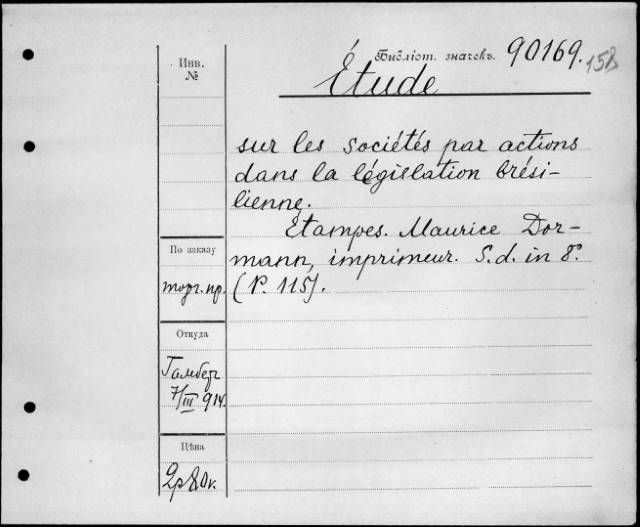 Инв.
№
Библіот. значекъ. 90169. 158
Étude
sur les sociétés par actions
dans la législation brési-
lienne.
Etampes. Maurice Dor-
mann, imprimeur. S.d. in 8º.
(P. 115).
По заказу
торг. пр.
Откуда
Гамбер
7/III 914.
Цѣна
2р80к.